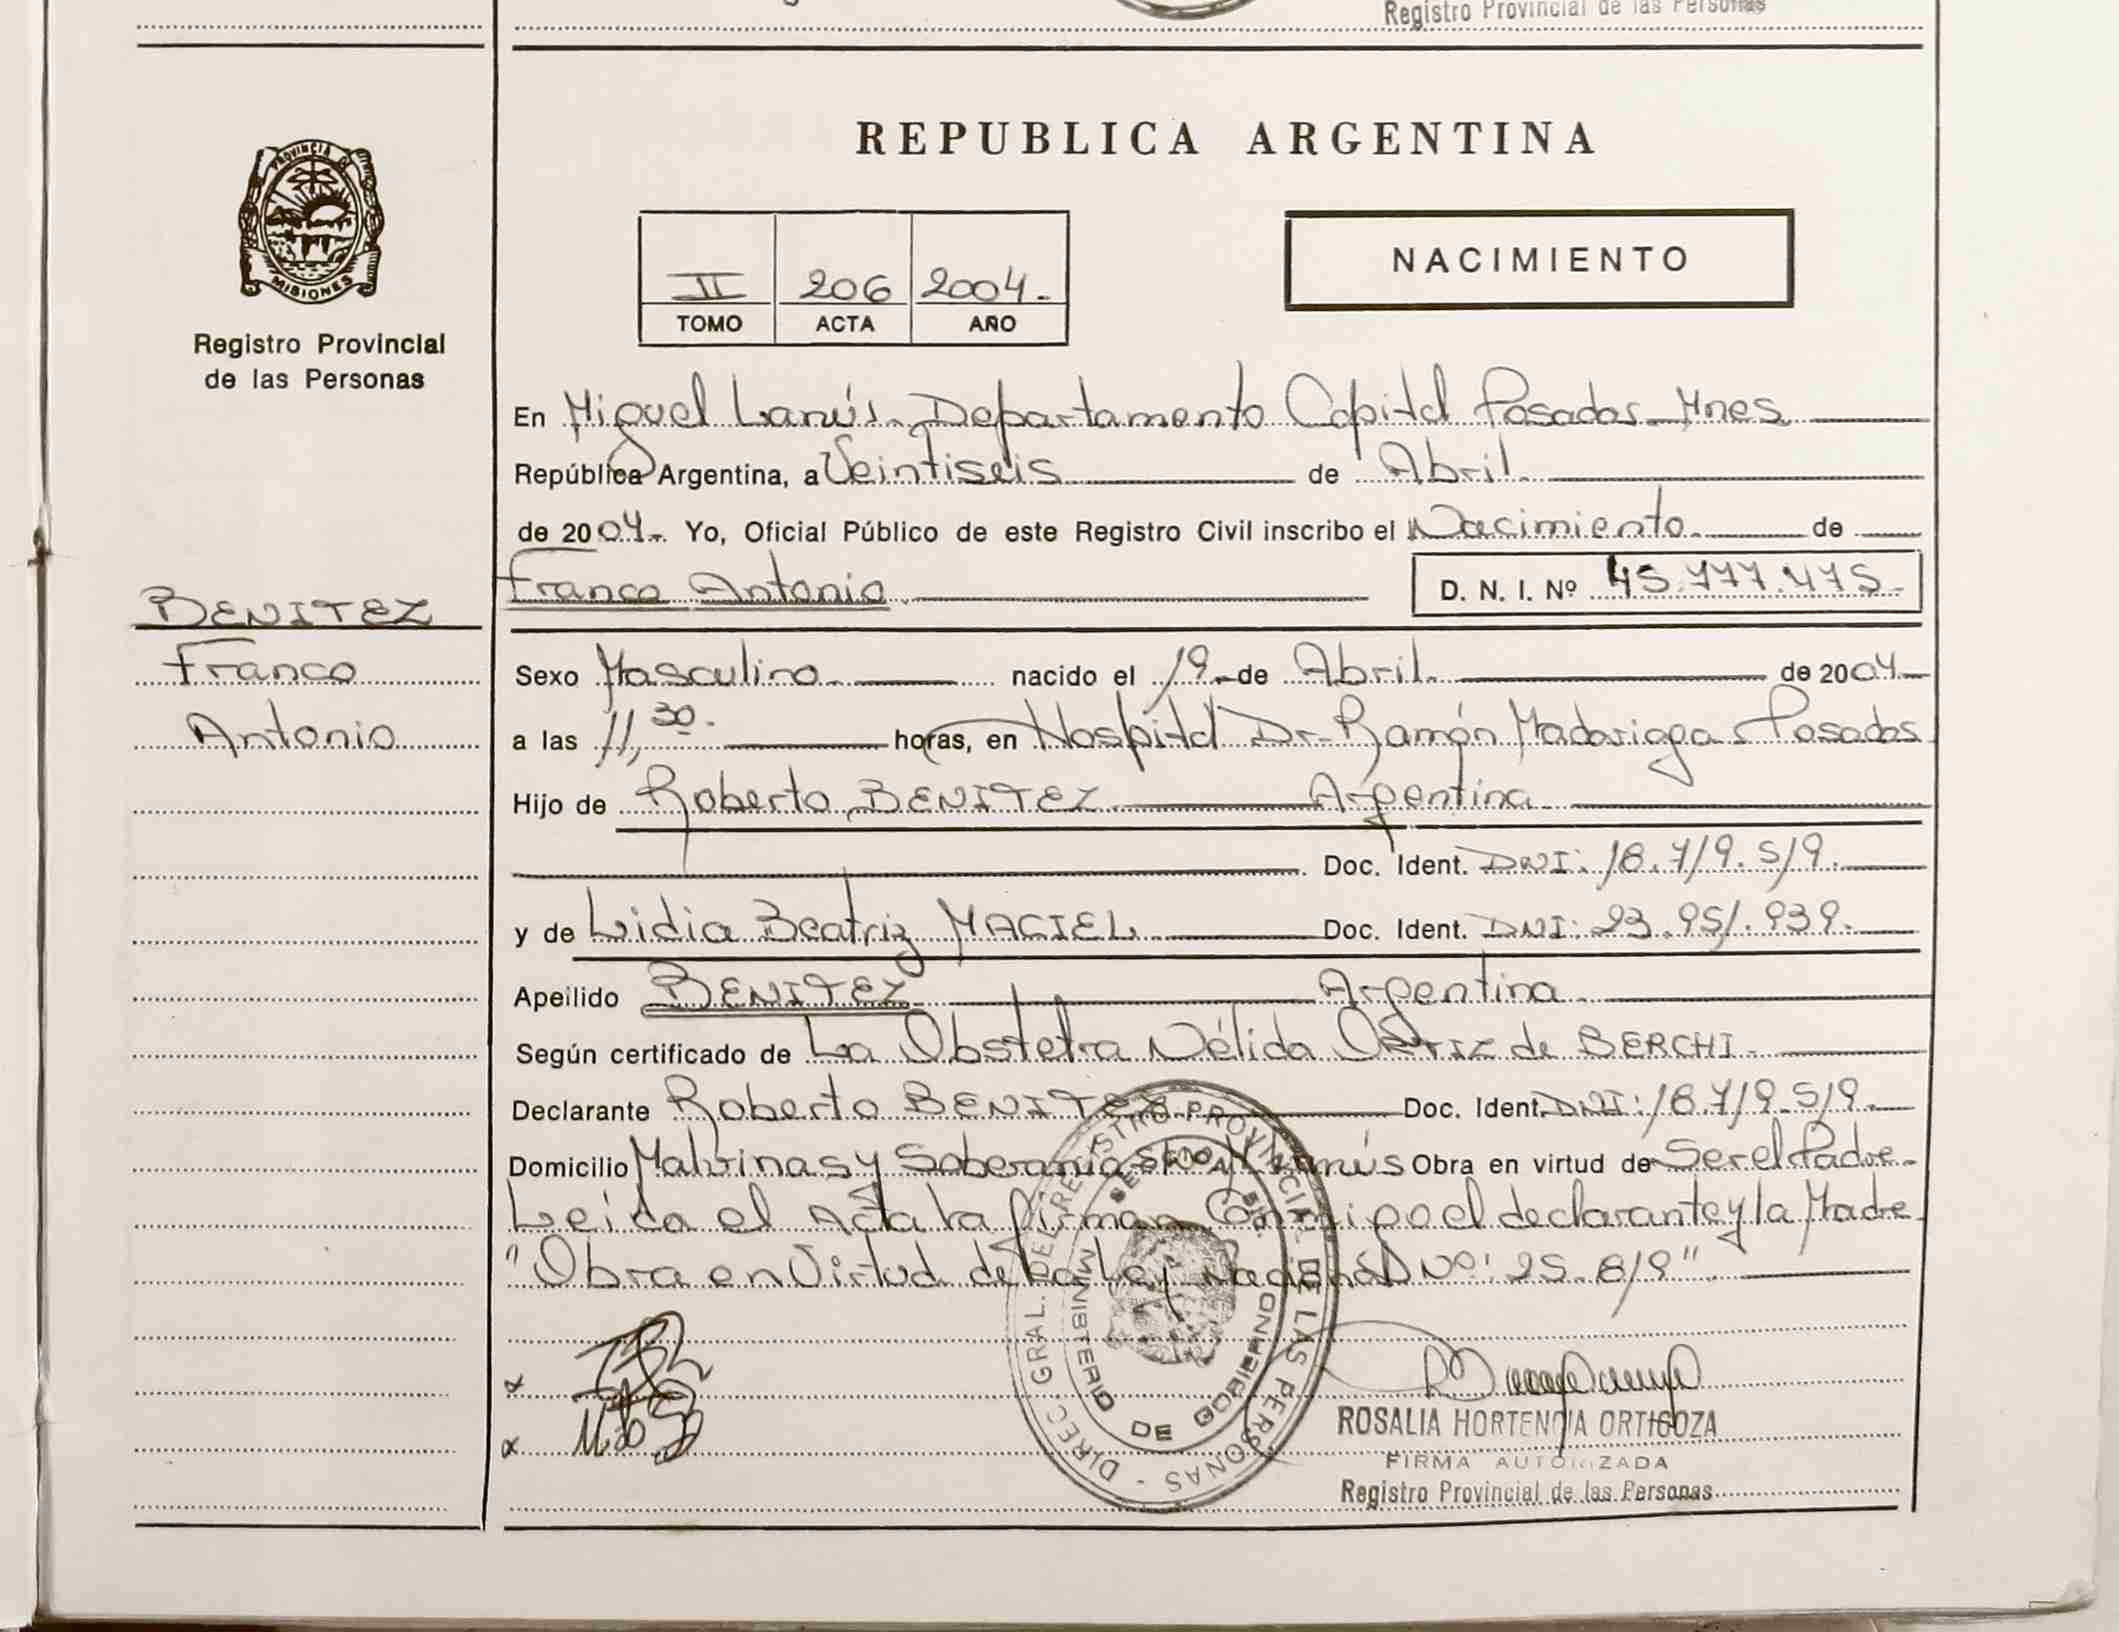 Registro Provincial de las Personas
PROVINCIA DE
MISIONES
Registro Provincial
de las Personas
REPUBLICA ARGENTINA
II 206 2004.-
TOMO ACTA AÑO
NACIMIENTO
En Miguel Lanús. Departamento Capital Posadas Mnes
República Argentina, a Veintiseis de Abril
de 2004.- Yo, Oficial Público de este Registro Civil inscribo el Nacimiento de
Franco Antonio D. N. I. Nº 45.777.475.-
BENITEZ
Franco
Antonio
Sexo Masculino nacido el 19 de Abril de 2004.-
a las 11,30. horas, en Hospital Dr. Ramón Madariaga Posadas
Hijo de Roberto BENITEZ Argentina
Doc. Ident. DNI: 18.719.519.
y de Lidia Beatriz MACIEL Doc. Ident. DNI: 23.951.939.
Apellido BENITEZ Argentina
Según certificado de La Obstetra Nélida Ortiz de BERCHI.
Declarante Roberto BENITEZ Doc. Ident. DNI: 18.719.519.
Domicilio Malvinas y Soberanía Lanús Obra en virtud de Ser el Padre.
Leida el Acta la firman Conmigo el declarante y la Madre
"Obra en Virtud de la Ley Nacional Nº: 25.819"
DIREC. GRAL. DEL REGISTRO PROVINCIAL DE LAS PERSONAS -
MINISTERIO DE GOBIERNO
ROSALIA HORTENCIA ORTIGOZA
FIRMA AUTORIZADA
Registro Provincial de las Personas